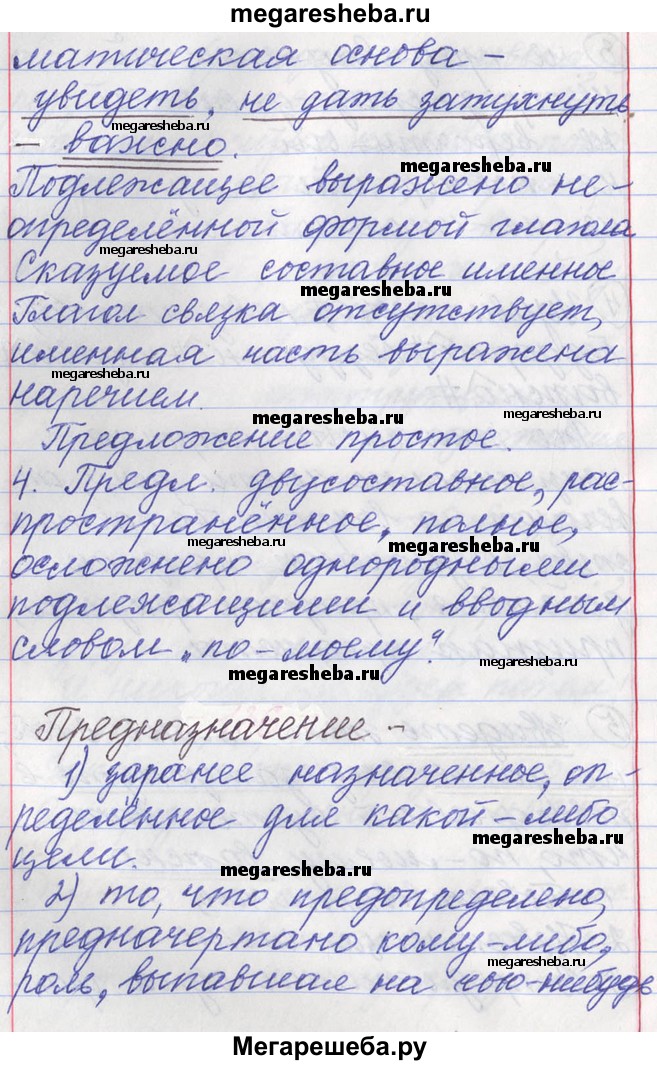 megaresheba.ru
матическая основа –
увидеть, не дать затухнуть
megaresheba.ru
– важно.
megaresheba.ru
Подлежащее выражено не-
определённой формой глагола
megaresheba.ru
Сказуемое составное именное
megaresheba.ru
Глагол связка отсутствует,
именная часть выражена
megaresheba.ru
наречием.
megaresheba.ru
megaresheba.ru
Предложение простое.
4. Предл. двусоставное, рас-
пространённое, полное,
megaresheba.ru
megaresheba.ru
осложнено однородными
подлежащими и вводным
словом „по-моему".
megaresheba.ru
megaresheba.ru
Предназначение –
1) заранее назначенное, оп-
ределённое для какой-либо
megaresheba.ru
цели.
megaresheba.ru
2) то, что предопределено,
предначертано кому-либо,
megaresheba.ru
роль, выпавшая на чью-нибудь
Мегарешеба.ру